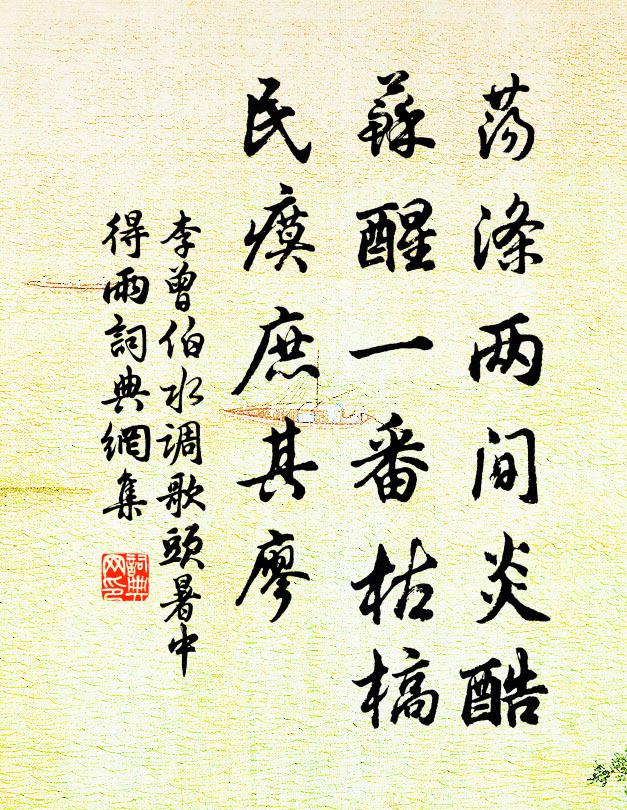 荡涤两间炎酷
蘇醒一番枯槁
民瘼庶其廖
李曾伯水调歌頭暑中
得雨詞典網集
詞典
网印